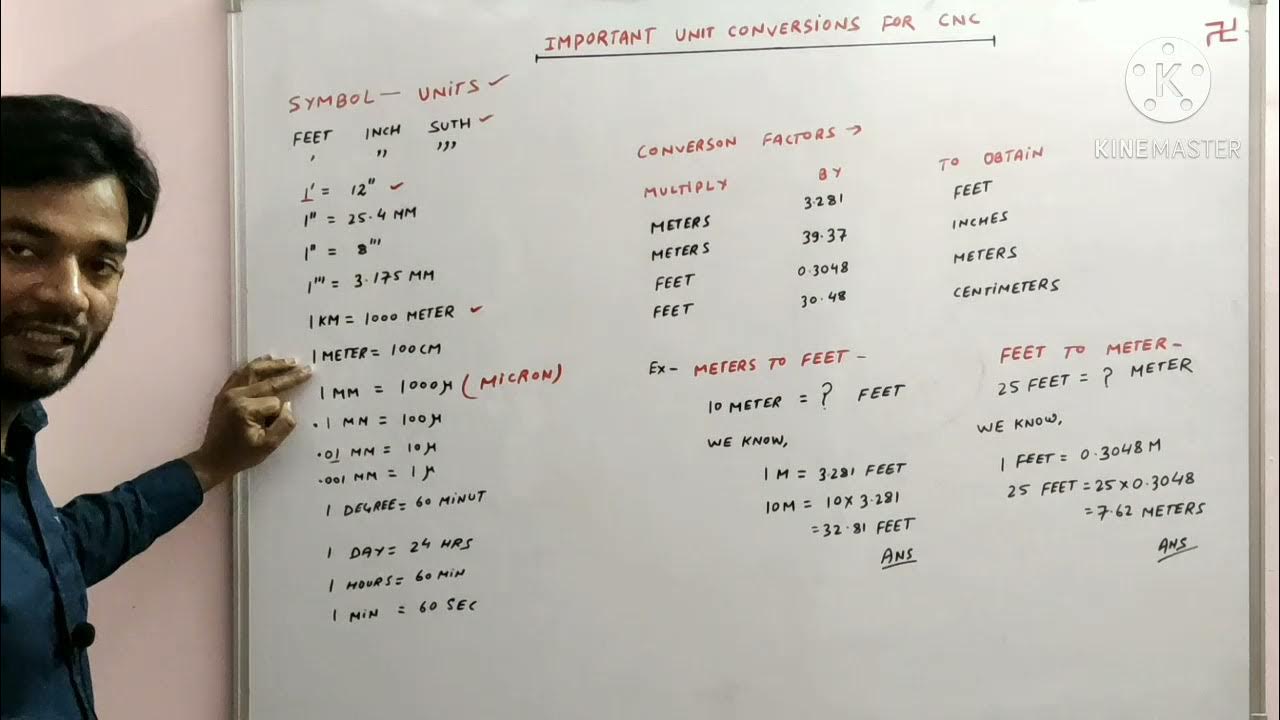 IMPORTANT UNIT CONVERSIONS FOR CNC
SYMBOL — UNITS ✓
FEET INCH SUTH ✓
' '' '''
1' = 12" ✓
1" = 25.4 MM
1" = 8'''
1''' = 3.175 MM
1 KM = 1000 METER ✓
1 METER = 100 CM
1 MM = 1000 μ (MICRON)
.1 MM = 100 μ
.01 MM = 10 μ
.001 MM = 1 μ
1 DEGREE = 60 MINUT
1 DAY = 24 HRS
1 HOURS = 60 MIN
1 MIN = 60 SEC
CONVERSON FACTORS →
MULTIPLY BY TO OBTAIN
METERS 3.281 FEET
METERS 39.37 INCHES
FEET 0.3048 METERS
FEET 30.48 CENTIMETERS
Ex- METERS TO FEET -
10 METER = ? FEET
WE KNOW,
1 M = 3.281 FEET
10 M = 10 × 3.281
= 32.81 FEET
ANS
FEET TO METER -
25 FEET = ? METER
WE KNOW,
1 FEET = 0.3048 M
25 FEET = 25 × 0.3048
= 7.62 METERS
ANS
卐
K
KINEMASTER